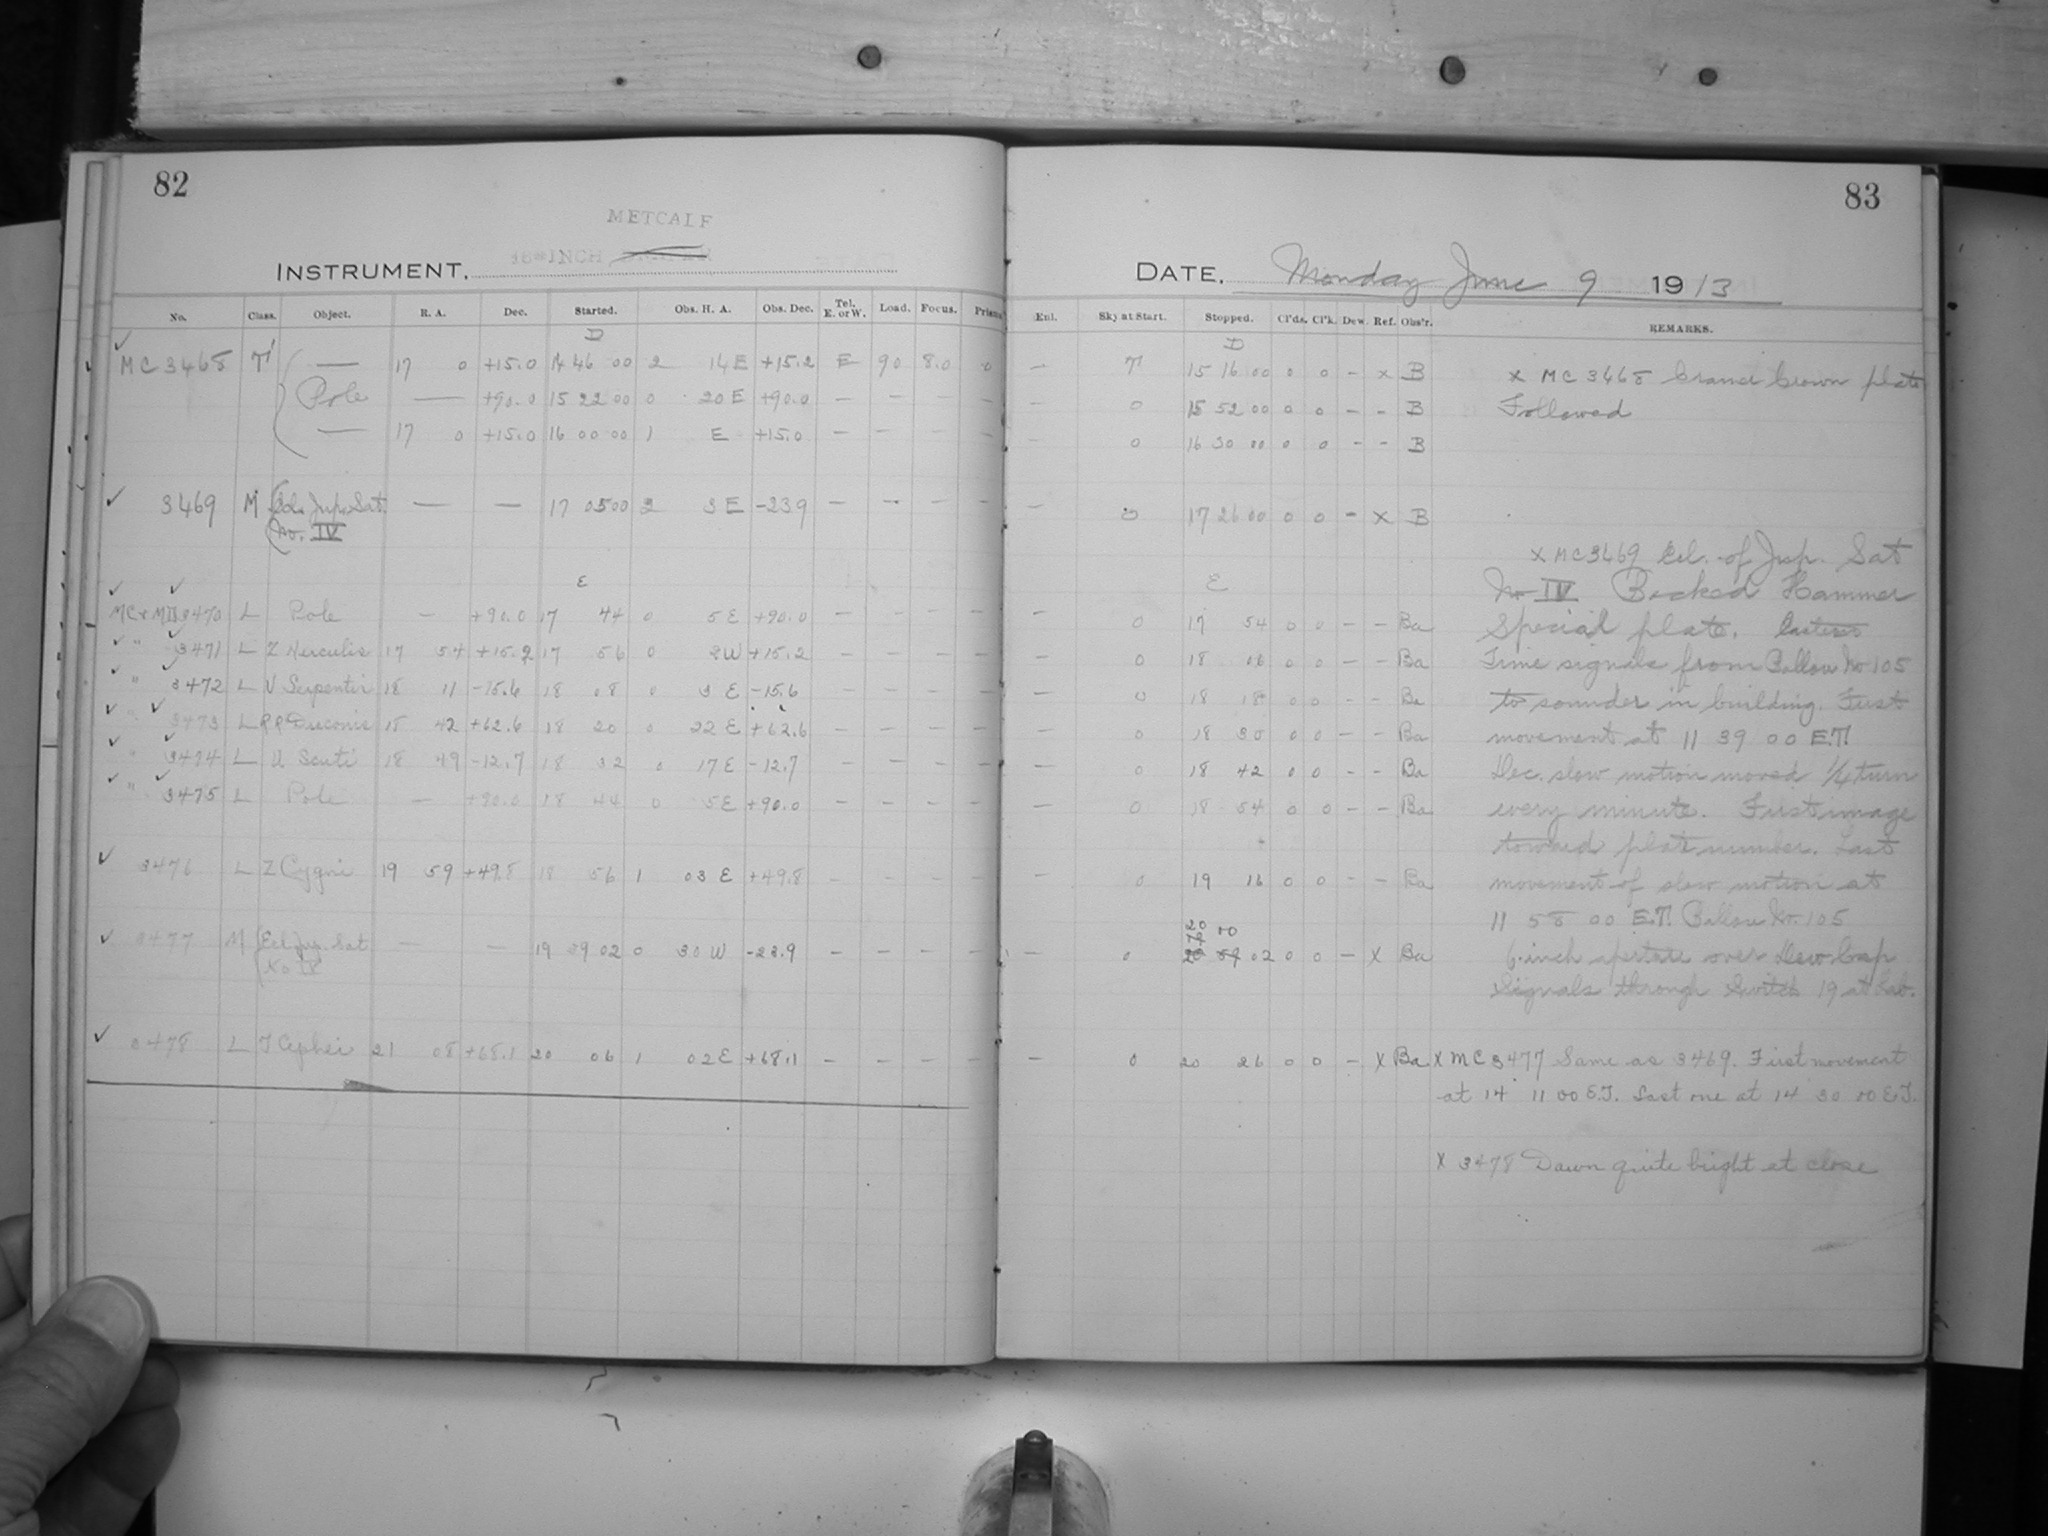 82
METCALF
INSTRUMENT, 16-INCH
No. Class. Object. R. A. Dec. Started. Obs. H. A. Obs. Dec. Tel. E. or W. Load. Focus. Prism
D
MC 3468 T — 17 0 +15.0 14 46 00 2 14 E +15.2 E 90 8.0 0
Pole — +90.0 15 22 00 0 20 E +90.0 — — — —
— 17 0 +15.0 16 00 00 1 E +15.0 — — — —
3469 M Ecl. Jup. Sat. — — 17 05 00 2 3 E -23.9 — — — —
No. IV
E
MC & MD 3470 L Pole — +90.0 17 44 0 5 E +90.0 — — — —
" 3471 L Z Herculis 17 54 +15.2 17 56 0 2 W +15.2 — — — —
" 3472 L U Serpentis 18 11 -15.6 18 08 0 3 E -15.6 — — — —
" 3473 L RR Draconis 18 42 +62.6 18 20 0 22 E +62.6 — — — —
" 3474 L U Scuti 18 49 -12.7 18 32 0 17 E -12.7 — — — —
" 3475 L Pole — +90.0 18 44 0 5 E +90.0 — — — —
3476 L Z Cygni 19 59 +49.8 18 56 1 03 E +49.8 — — — —
3477 M Ecl. Jup. Sat — — 19 39 02 0 30 W -23.9 — — — —
No IV
3478 L T Cephei 21 08 +68.1 20 06 1 02 E +68.1 — — — —
83
DATE, Monday June 9 1913
Enl. Sky at Start. Stopped. Cl'ds. Cl'k. Dew. Ref. Obs'r. REMARKS.
D
— T 15 16 00 0 0 – x B x MC 3468 Cramer Crown plate
— 0 15 52 00 0 0 – – B Followed
— 0 16 30 00 0 0 – – B
— 0 17 26 00 0 0 – x B
x MC 3469 Ecl. of Jup. Sat
E
No IV Backed Hammer
— 0 17 54 0 0 – – Ba Special plate.
— 0 18 06 0 0 – – Ba Time signals from Ballou No 105
— 0 18 18 0 0 – – Ba to sounder in building. First
— 0 18 30 0 0 – – Ba movement at 11 39 00 E.T.
— 0 18 42 0 0 – – Ba Dec. slow motion moved 1/4 turn
— 0 18 54 0 0 – – Ba every minute. First image
toward plate number. Last
— 0 19 16 0 0 – – Ba movement of slow motion at
11 58 00 E.T. Ballou No. 105
20 00
— 0 02 0 0 – x Ba 6-inch aperture over Dew Cap
Signals through Switch 19 at Lab.
— 0 20 26 0 0 – x Ba x MC 3477 Same as 3469. First movement
at 14 11 00 E.T. Last one at 14 30 00 E.T.
x 3478 Dawn quite bright at close